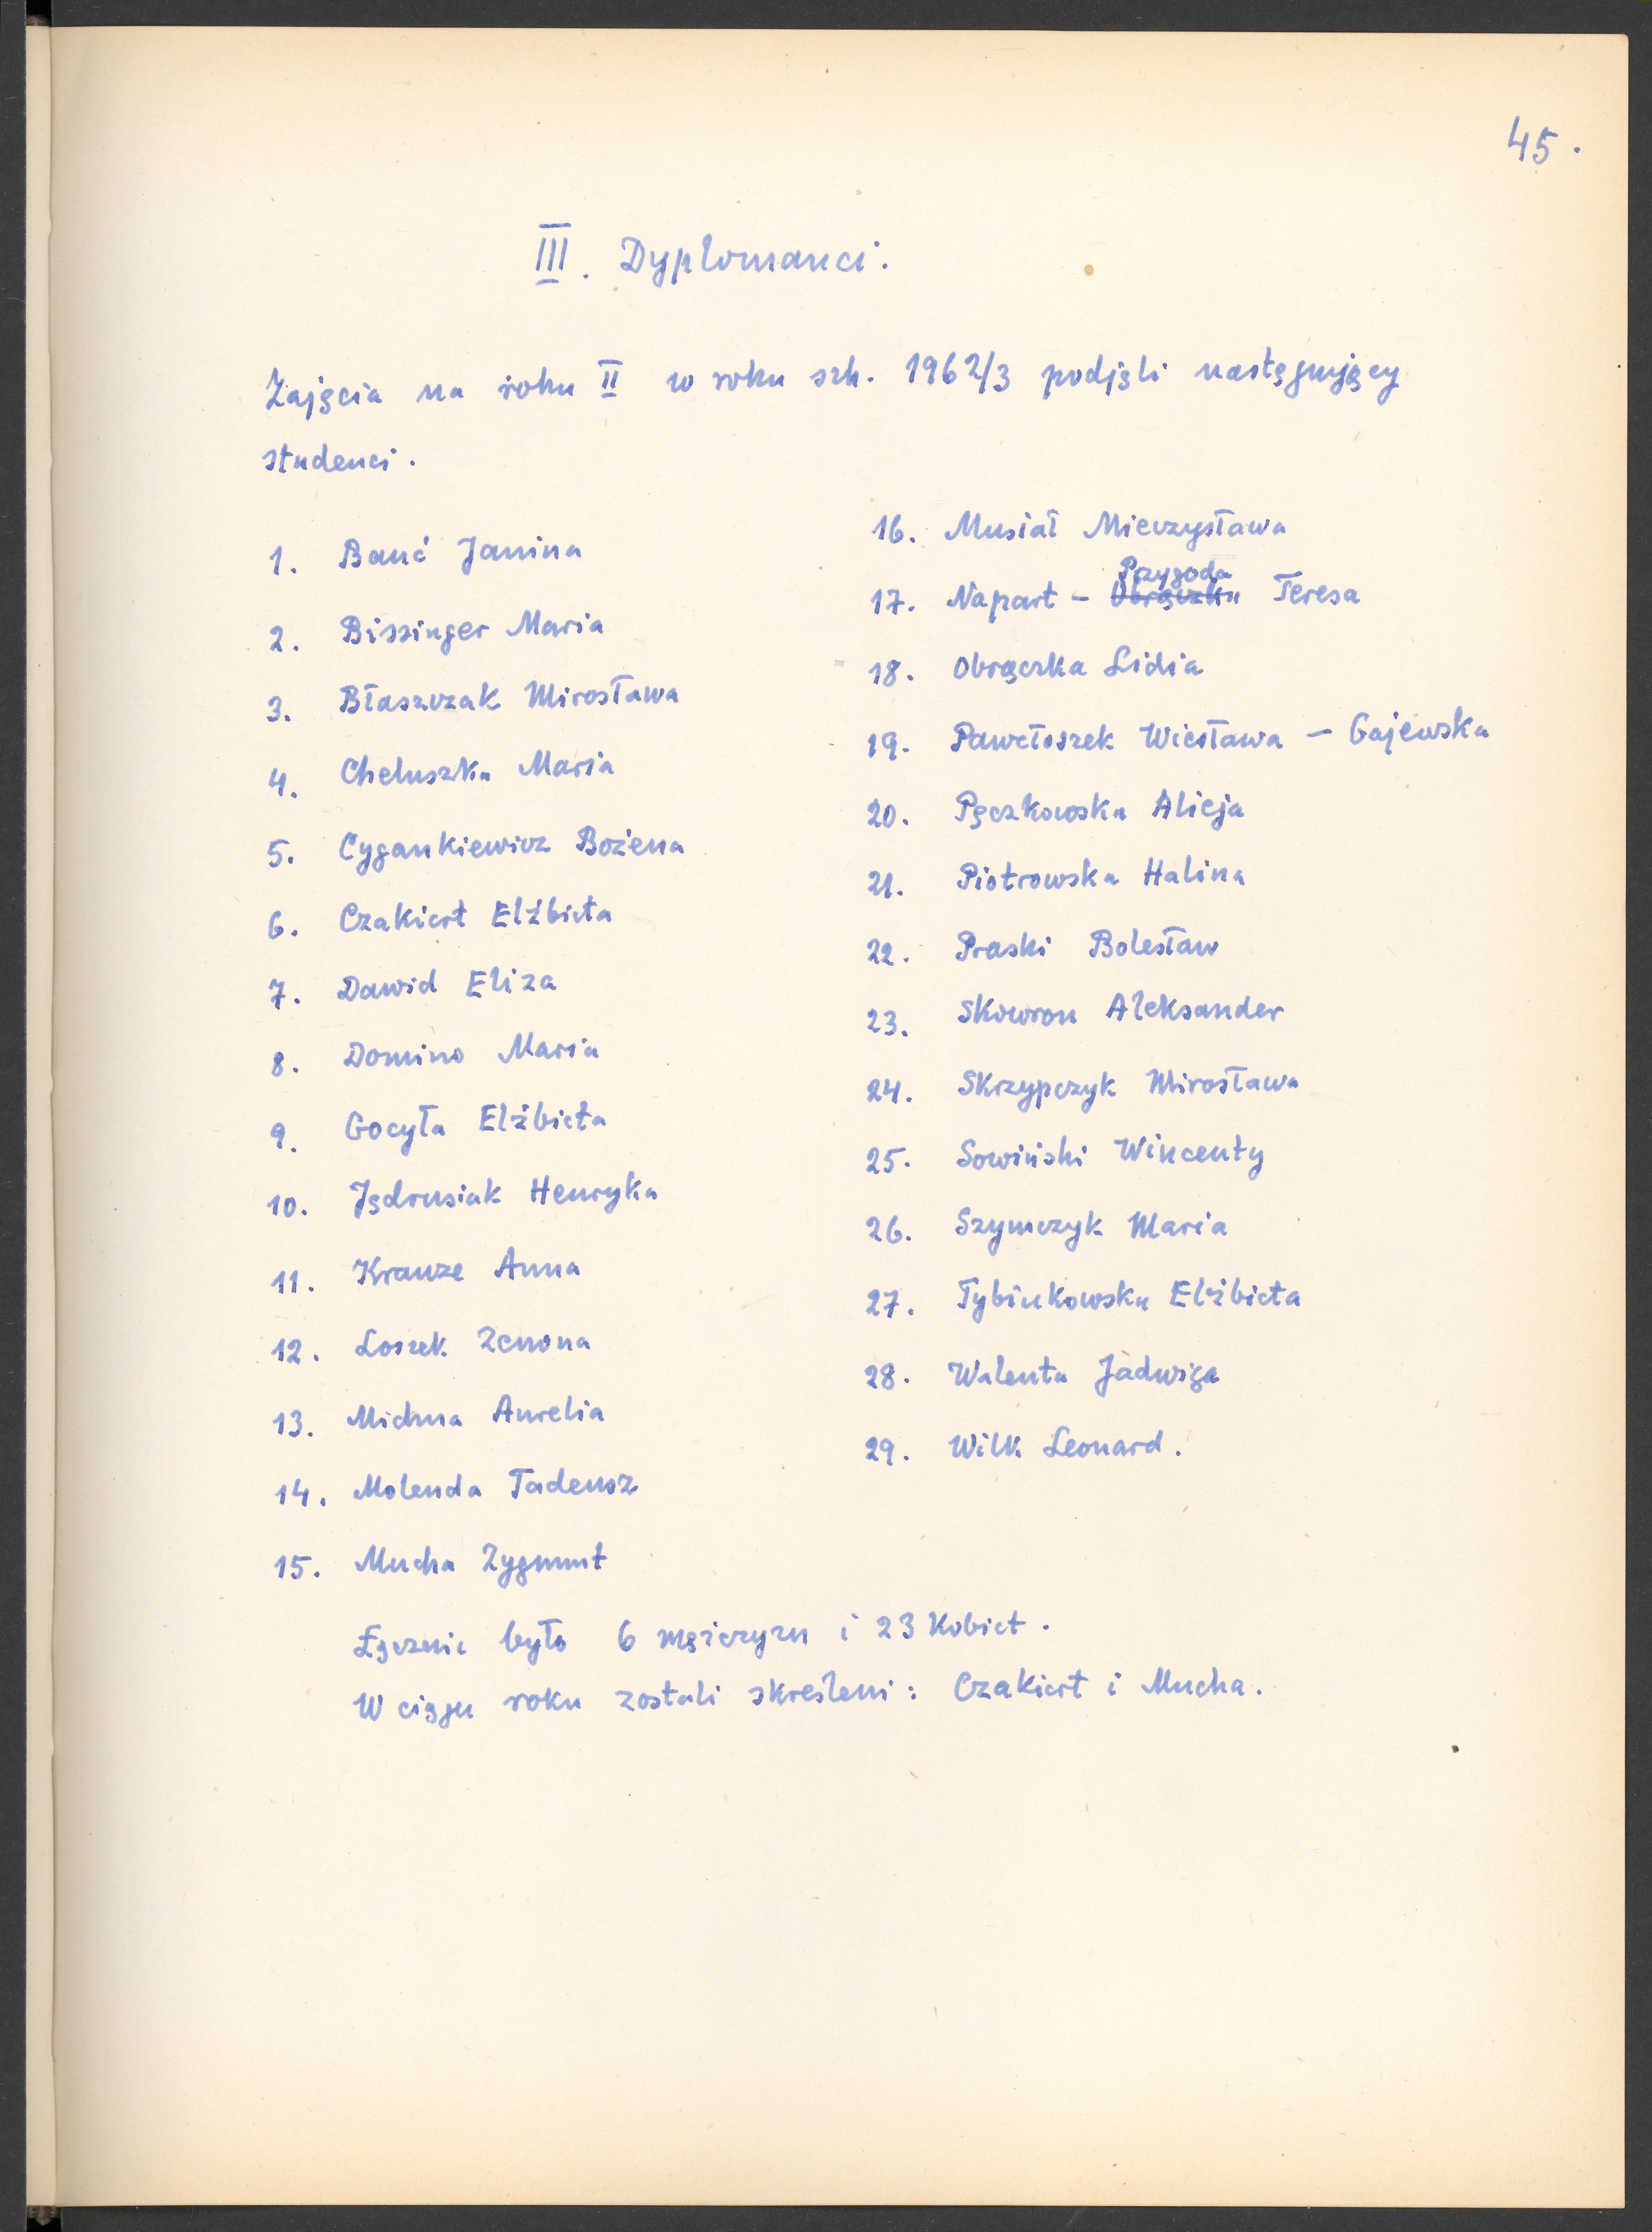 45.
III. Dyplomanci.
Zajęcia na roku II w roku szk. 1962/3 podjęli następujący
studenci.
1. Banć Janina
2. Bissinger Maria
3. Błaszczak Mirosława
4. Cheluszka Maria
5. Cygankiewicz Bożena
6. Czakiert Elżbieta
7. Dawid Eliza
8. Domino Maria
9. Gocyła Elżbieta
10. Jędrusiak Henryka
11. Krauze Anna
12. Loszek Zenona
13. Michna Aurelia
14. Molenda Tadeusz
15. Mucha Zygmunt
16. Musiał Mieczysława
Przygoda
17. Napart - Obrączka Teresa
18. Obrączka Lidia
19. Pawełoszek Wiesława - Gajewska
20. Pęczkowska Alicja
21. Piotrowska Halina
22. Praski Bolesław
23. Skowron Aleksander
24. Skrzypczyk Mirosława
25. Sowiński Wincenty
26. Szymczyk Maria
27. Tybinkowska Elżbieta
28. Walenta Jadwiga
29. Wilk Leonard.
Łącznie było 6 mężczyzn i 23 kobiet.
W ciągu roku zostali skreśleni: Czakiert i Mucha.